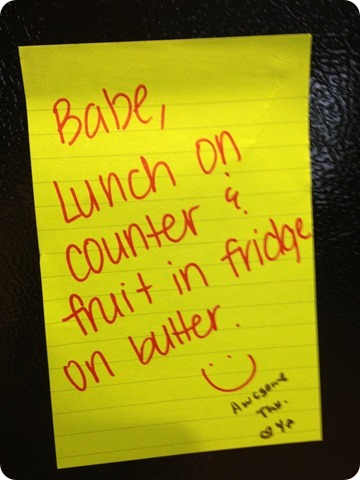 Babe,
Lunch on
counter &
fruit in fridge
on butter.
Awesome
Thx.